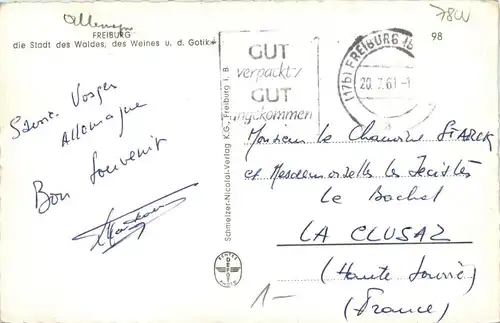 Allemagne
78W
FREIBURG
die Stadt des Waldes, des Weines u. d. Gotik
98
GUT
verpackt,
GUT
angekommen
(17b) FREIBURG (B
20.7.61-1
a
Allemagne
Bon Souvenir
Schmelzer-Nicolai-Verlag K.G., Freiburg i. B.
Monsieur le Chanoine STARCK
et Mesdemoiselles les
Le Bachal
LA CLUSAZ
(Haute Savoie)
(France)
1-